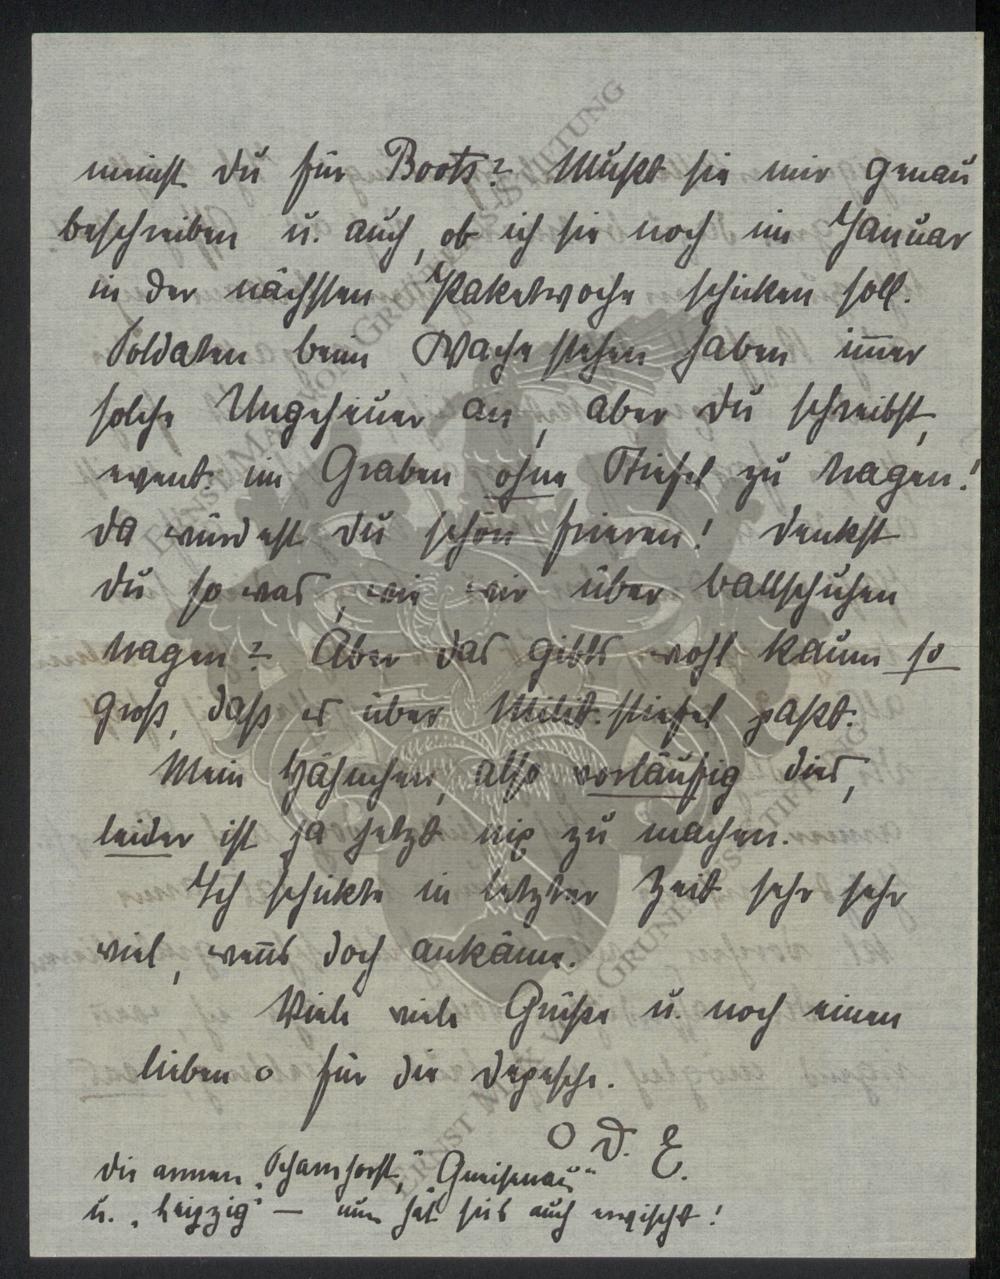 meinst du für Boots? Mußt sie mir genau
beschreiben u. auch, ob ich sie noch im Januar
in der nächsten Paketwoche schicken soll.
Soldaten beim Wache stehen haben im̄er
solche Ungeheuer an, aber du schreibst,
event. im Graben ohne Stiefel zu tragen!
da würdest du schön frieren! denkst
du so was, wie wir über Ballschuhen
tragen? Aber das gibts wohl kaum so
groß, daß es über Milit. stiefel paßt.
Mein Hähnchen, also vorläufig dies,
leider ist ja jetzt nix zu machen.
Ich schickte in letzter Zeit sehr sehr
viel, wen̄s doch ankäme.
Viele viele Grüße u. noch einen
lieben o für die Depesche.
O D. E.
die armen „Scharnhorst“, „Gneisenau“
u. „Leipzig“ – nun hat sies auch erwischt!
ERNST MAX VON GRUNELIUS-STIFTUNG
ERNST MAX VON GRUNELIUS-STIFTUNG